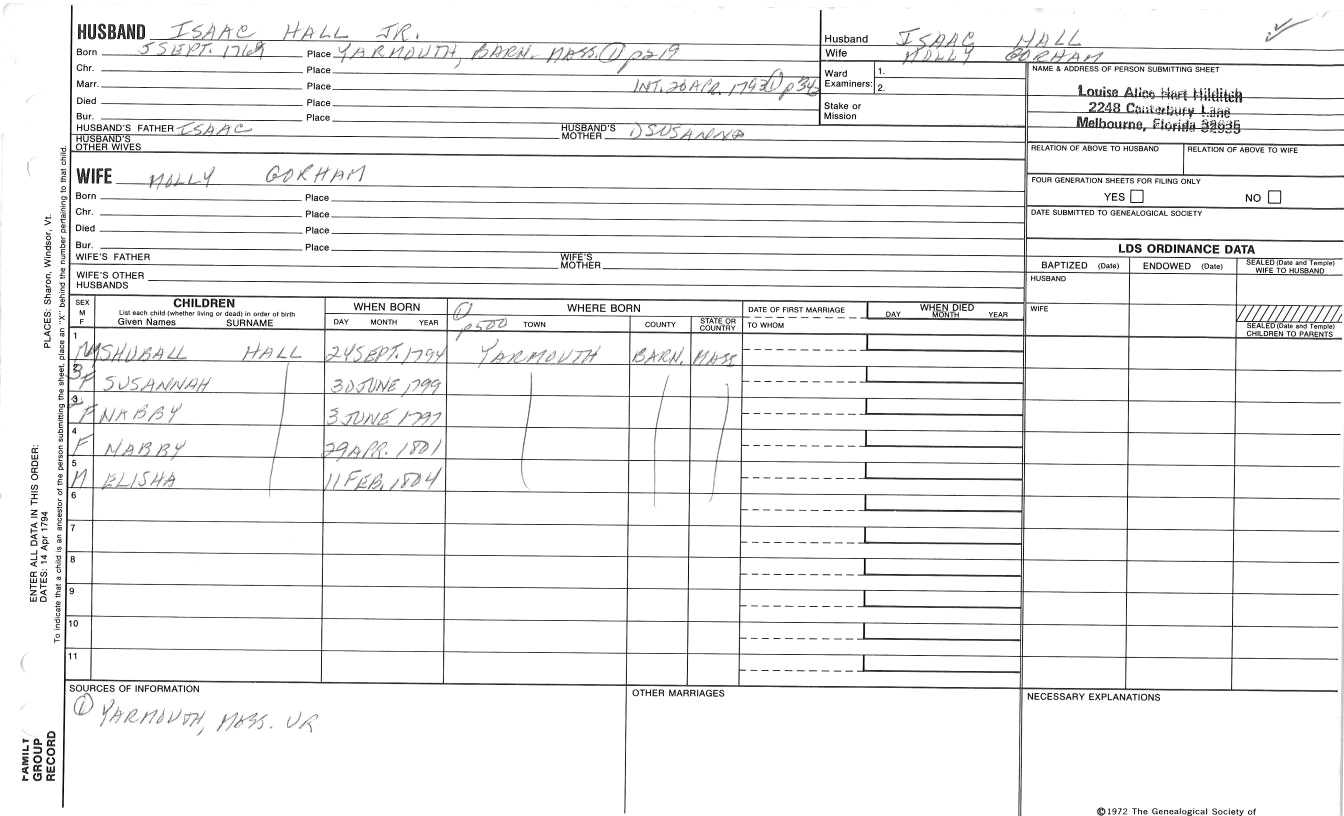 HUSBAND ISAAC HALL JR.
Born 5 SEPT. 1769 Place YARMOUTH, BARN. MASS. ① p219
Chr. Place
Marr. Place INT. 20 APR. 1793 ① p342
Died Place
Bur. Place
HUSBAND'S FATHER ISAAC HUSBAND'S MOTHER DSUSANNA
HUSBAND'S OTHER WIVES
WIFE MOLLY GORHAM
Born Place
Chr. Place
Died Place
Bur. Place
WIFE'S FATHER WIFE'S MOTHER
WIFE'S OTHER HUSBANDS
Husband ISAAC HALL
Wife MOLLY GORHAM
Ward Examiners: 1.
2.
Stake or Mission
NAME & ADDRESS OF PERSON SUBMITTING SHEET
Louise Alice Hart Hilditch
2248 Canterbury Lane
Melbourne, Florida 32935
RELATION OF ABOVE TO HUSBAND RELATION OF ABOVE TO WIFE
FOUR GENERATION SHEETS FOR FILING ONLY
YES NO
DATE SUBMITTED TO GENEALOGICAL SOCIETY
LDS ORDINANCE DATA
BAPTIZED (Date) ENDOWED (Date) SEALED (Date and Temple) WIFE TO HUSBAND
HUSBAND
WIFE
SEALED (Date and Temple) CHILDREN TO PARENTS
SEX M F
CHILDREN
List each child (whether living or dead) in order of birth
Given Names SURNAME
WHEN BORN
DAY MONTH YEAR
① p500
WHERE BORN
TOWN COUNTY STATE OR COUNTRY
DATE OF FIRST MARRIAGE
TO WHOM
WHEN DIED
DAY MONTH YEAR
1 M SHUBALL HALL 24 SEPT. 1794 YARMOUTH BARN. MASS
3 F SUSANNAH 30 JUNE 1799
2 F NABBY 3 JUNE 1797
4 F NABBY 29 APR. 1801
5 M ELISHA 11 FEB. 1804
6
7
8
9
10
11
SOURCES OF INFORMATION
① YARMOUTH, MASS. VR
OTHER MARRIAGES
NECESSARY EXPLANATIONS
©1972 The Genealogical Society of
PLACES: Sharon, Windsor, Vt.
ENTER ALL DATA IN THIS ORDER:
DATES: 14 Apr 1794
To indicate that a child is an ancestor of the person submitting the sheet, place an "X" behind the number pertaining to that child.
FAMILY
GROUP
RECORD